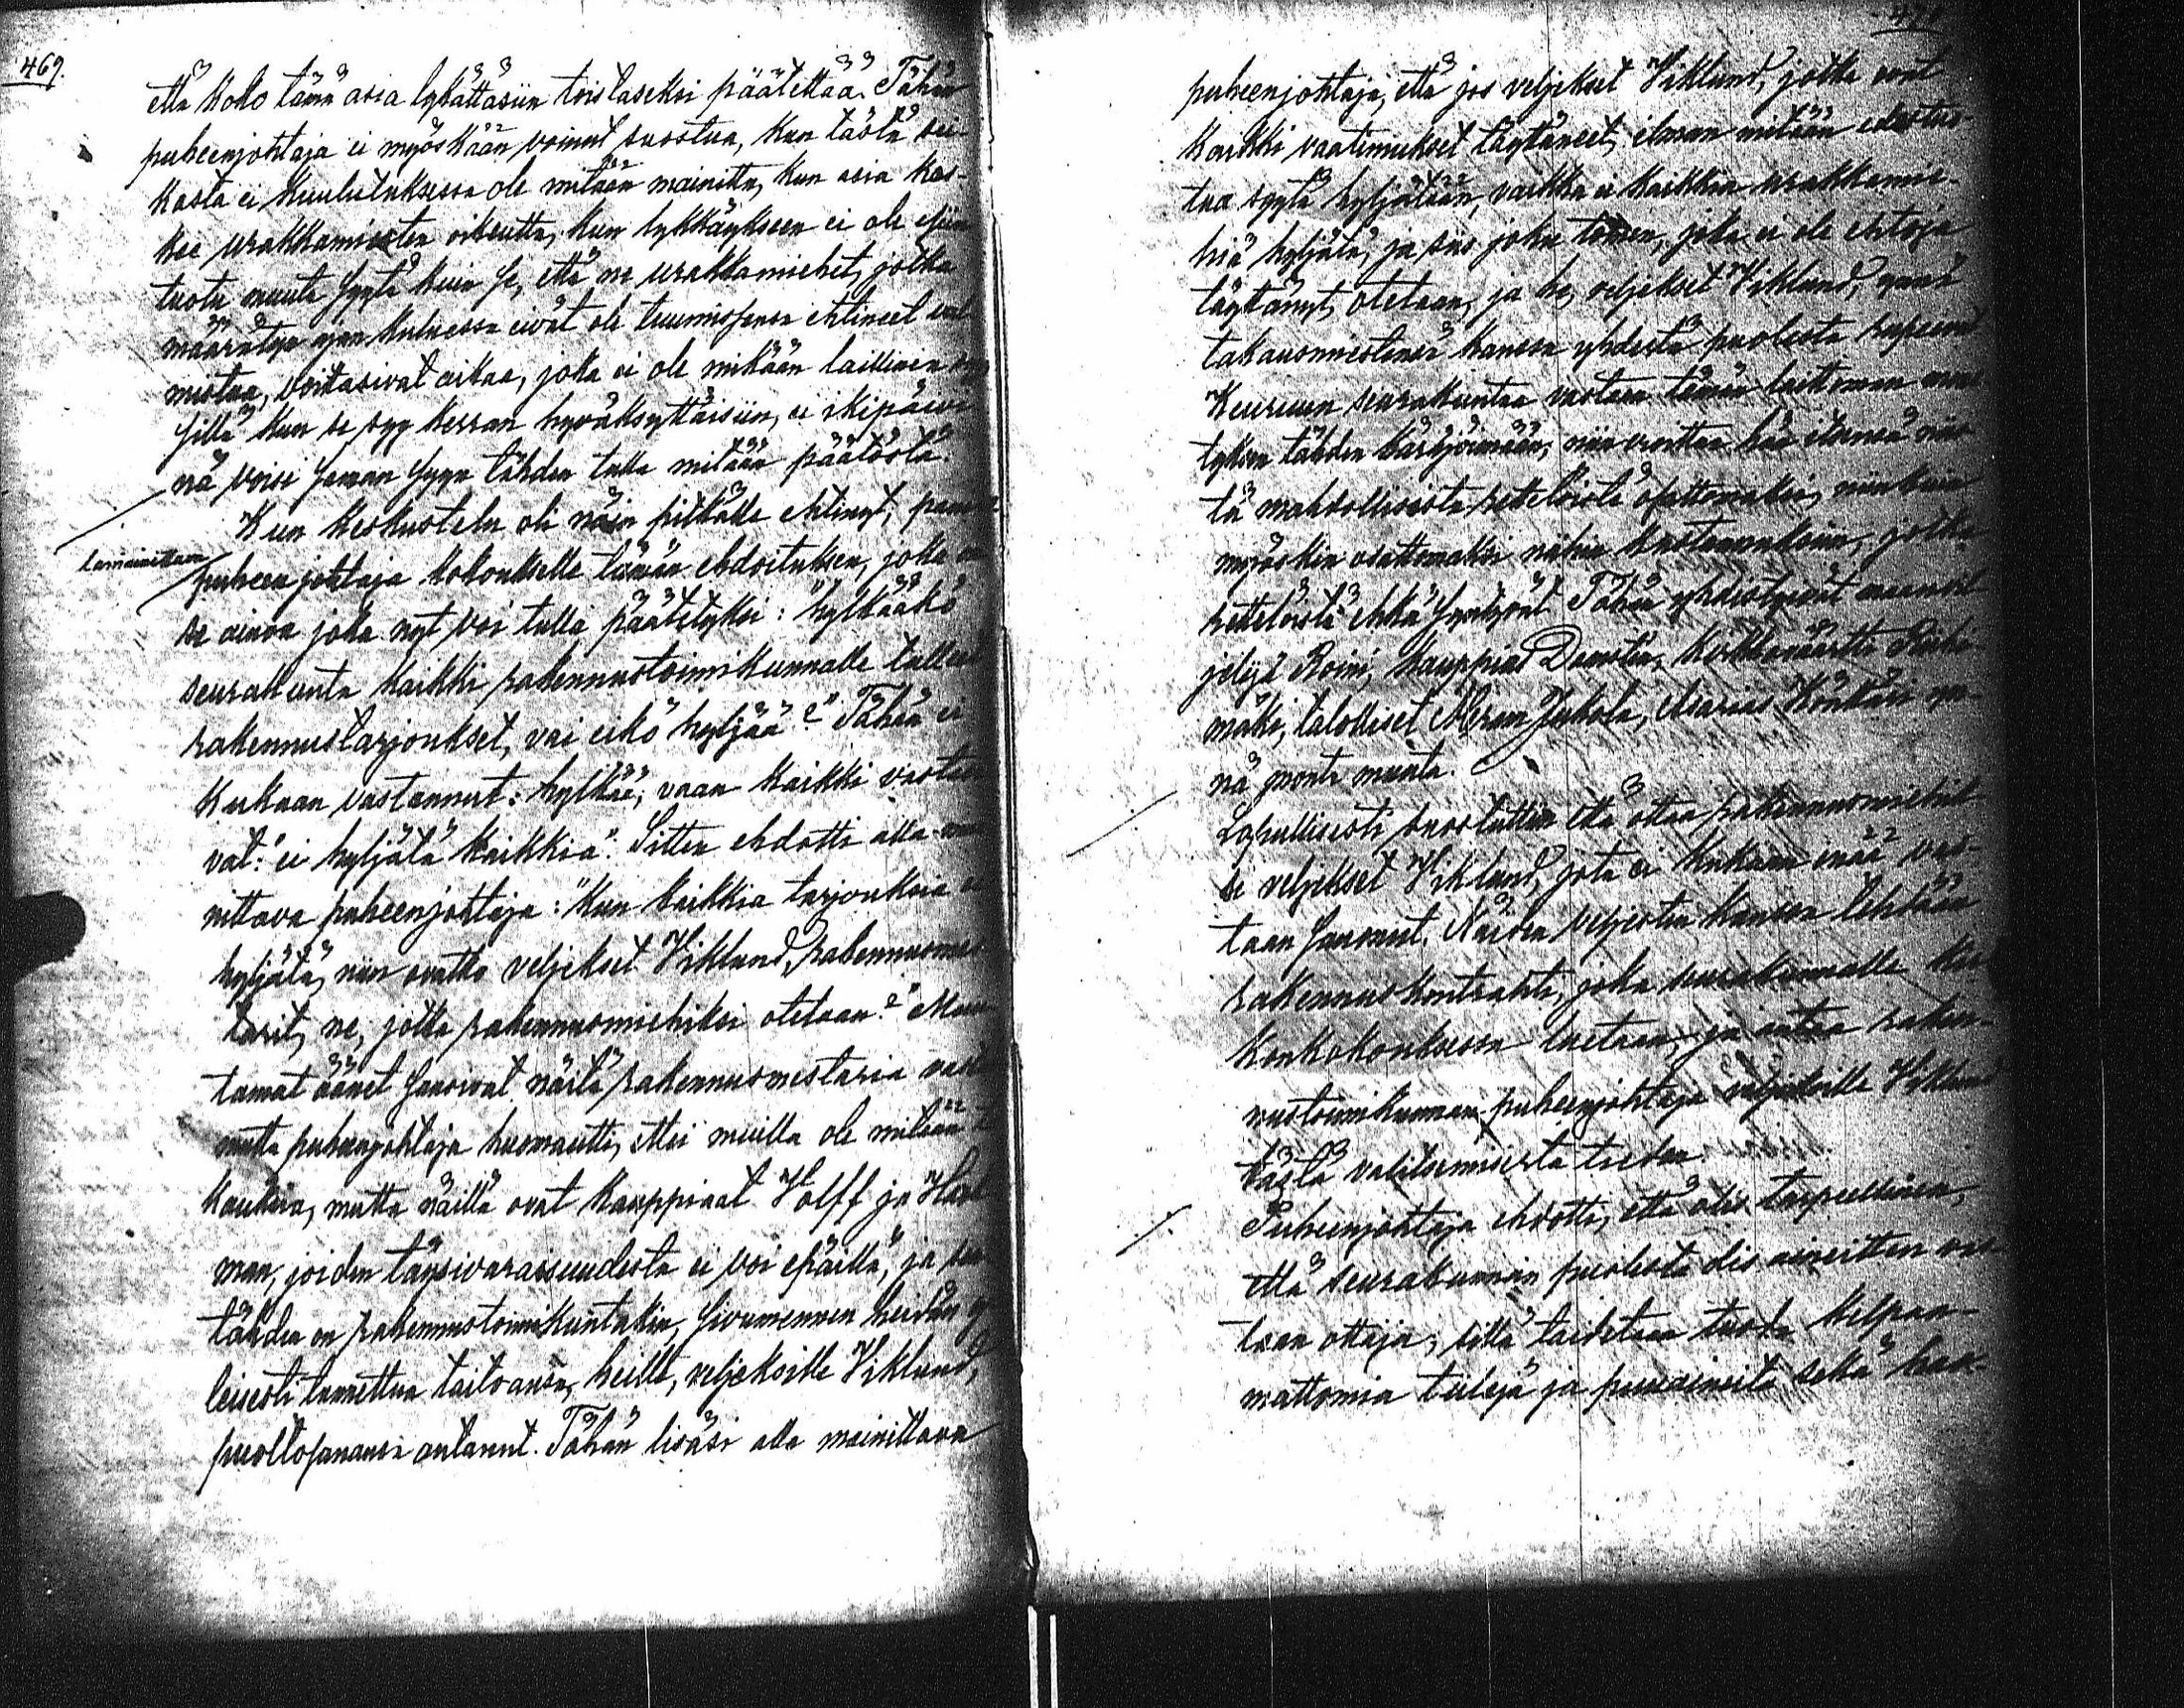 469.
että koko tämä asia lykättäsiin toistaseksi päätettää. Tähän
puheenjohtaja ei myöskään voinut suostua, kun täötä sei-
kasta ei kuulutuksessa ole mitään mainittu, kun asia kos-
kee urakkamiesten oikeutta, kun lykkäykseen ei ole
tuotu muuta syytä kuin se, että ne urakkamiehet, jotka
määrätyn ajan kuluessa eivät ole tuumissansa ehtineet val-
mistaa, voittasivat aikaa, joka ei ole mikään laillinen syy
sillä kun se syy kerran hyväksyttäisiin, ei ikipäivi-
nä voisi saman syyn tähden tulla mitään päätöstä.
Kun keskustelu oli näin pitkälle ehtinyt, pani
puheenjohtaja kokoukselle tämän ehdoituksen, joka on
se ainoa joka nyt voi tulla päätetyksi: "hylkääkö
seurakunta kaikki rakennustoimikunnalle tulleet
rakennustarjoukset, vai eikö hyljää?" Tähän ei
kukaan vastannut: hylkää; vaan kaikki vastasi-
vat: "ei hyljätä kaikkia". Sitten ehdotti alla mai-
nittava puheenjohtaja: "Kun kaikkia tarjouksia ei
hyljätä, niin ovatko veljekset Viklund, rakennusmes-
tarit, ne, jotka rakennusmiehiksi otetaan?" Muu-
tamat äänet sanoivat näitä rakennusmestaria vast
mutta puheenjohtaja huomautti, ettei muilla ole mitään
kauksia, mutta näillä ovat kauppiaat Wolff ja
man, joiden täysivaraisuudesta ei voi epäillä, ja sen
tähden on rakennustoimikuntakin, sivumennen heidän y-
leisesti tunnettua taitoansa, heille, veljeksille Viklund,
puoltosanansa antanut. Tähän lisäsi alla mainittava
puheenjohtaja, että jos veljekset Viklund, jotka ovat
kaikki vaatimukset täyttäneet, ilman mitään edestus-
tua syytä hyljätään, vaikka ei kaikkia urakkamie-
hiä hyljätä, ja siis joku toinen, joka ei ole ehtoja
täyttänyt, otetaan, ja he, veljekset Viklund, ynnä
takausmiestensä kanssa yhdestä puolesta rupeavat
Keuruun seurakuntaa vastaan tämän laittoman
tyksen tähden käräjöimään, niin eroittaa hän itsensä näis-
tä mahdollisista retteloistä osattomaksi, niinkuin
myöskin osattomaksi niihin kustannuksiin, jotka
retteloistä ehkä syntyvät. Tähän yhdistyivät maanvil-
jelijä Roini, kauppias Damstén, kirkkoväärtti Riihi-
mäki, talolliset Abram Jukola, Esaias Könkäri yn-
nä monta muuta.
Lopullisesti suostuttiin että ottaa rakennusmiehik-
si veljekset Viklund, jota ei kukaan enää vas-
taan sanonut. Näiden veljesten kanssa tehdään
rakennuskontrahti, joka seurakunnalle kir-
konkokouksessa luetaan, ja antaa raken-
nustoimikunnan puheenjohtaja veljeksille Viklund
tästä valitsemisesta tiedon.
Puheenjohtaja ehdotti, että olis tarpeellinen,
että seurakunnan puolesta olis aineitten vas-
taan ottaja, sillä taidetaan tuoda kelpaa-
mattomia tiilejä ja puuaineita sekä hak-